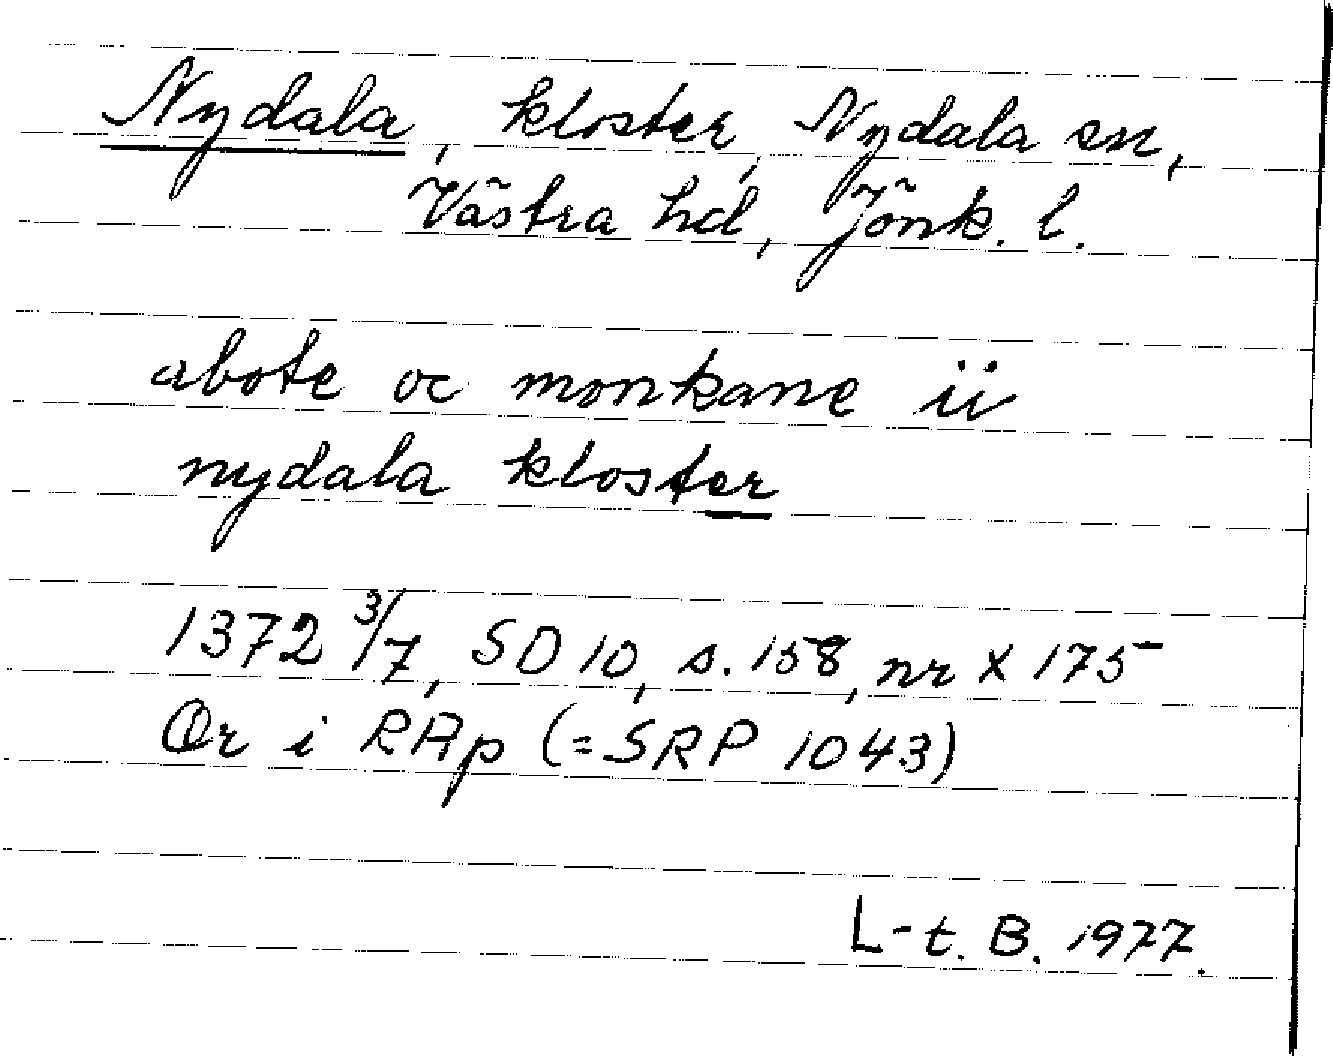 Nydala, kloster, Nydala sn,
Västra hd, Jönk. l.
abote oc monkane ii
nydala kloster
1372 3/7, SD 10, s. 158, nr X 175
Or i RAp (=SRP 1043)
L-t. B. 1977.